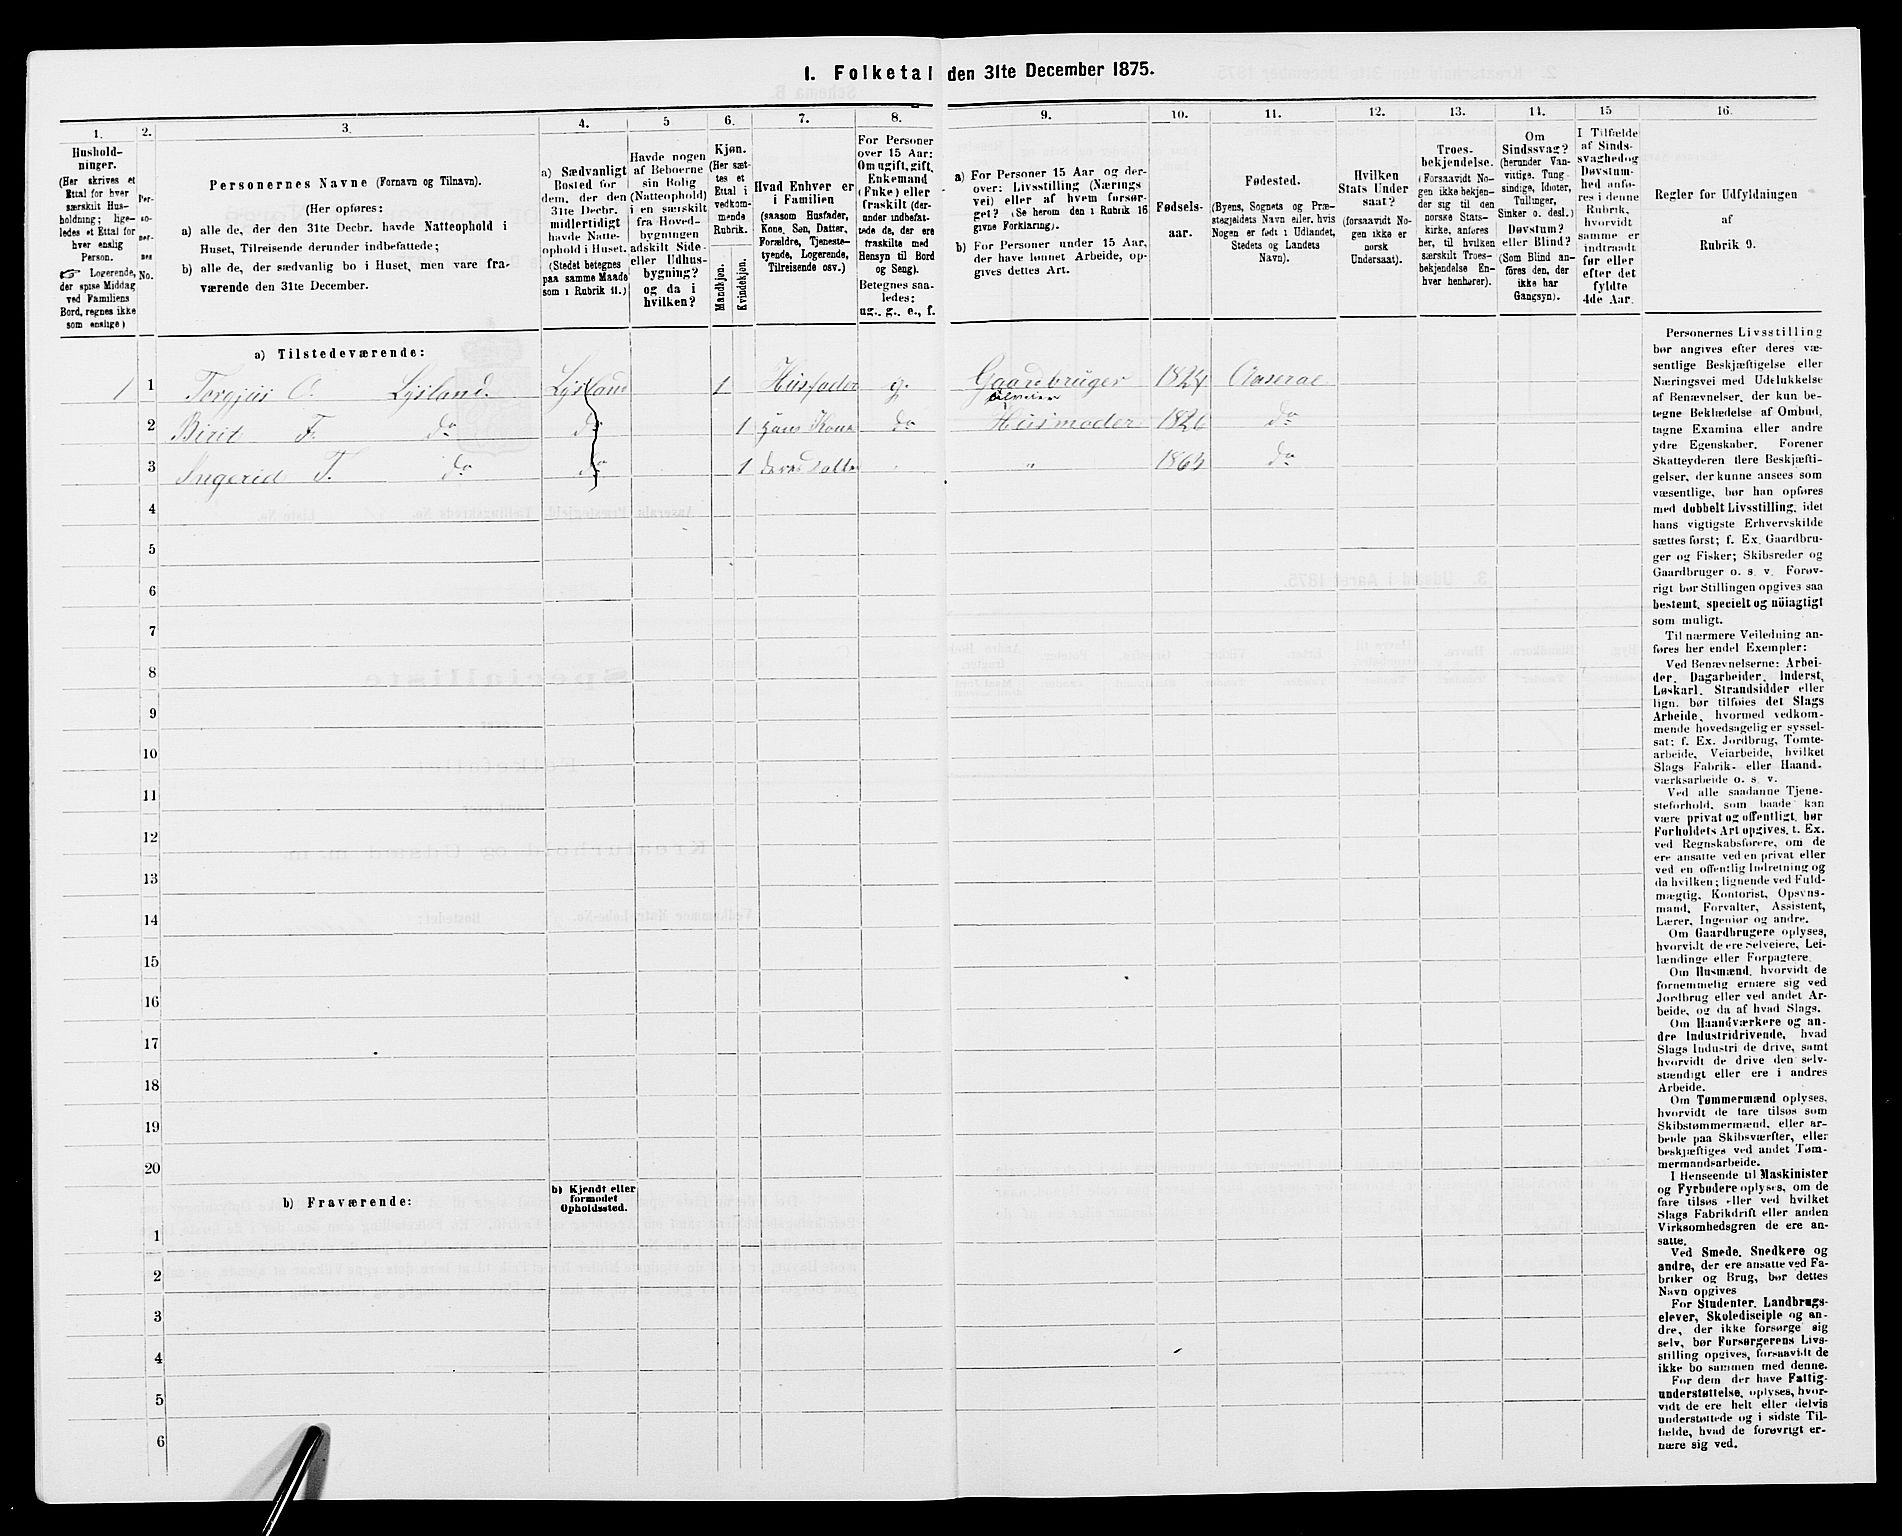 I. Folketal den 31te December 1875.
1.
2.
3.
4.
5
6.
7.
8.
9.
10.
11.
12.
13.
14.
15
16.
Hushold-
ninger.
(Her skrives et
Ettal for hver
særskilt Hus-
holdning; lige-
ledes et Ettal for
hver enslig
Person.
☞ Logerende,
der spise Middag
ved Familiens
Bord, regnes ikke
som enslige)
Per-
so-
ner-
nes
No.
Personernes Navne (Fornavn og Tilnavn).
(Her opføres:
a) alle de, der den 31te Decbr. havde Natteophold i
Huset, Tilreisende derunder indbefattede;
b) alle de, der sædvanlig bo i Huset, men vare fra-
værende den 31te December.
a) Sædvanligt
Bosted for
dem, der den
31te Decbr.
midlertidigt
havde Natte-
ophold i Huset.
(Stedet betegnes
paa samme Maade
som i Rubrik 11.)
Havde nogen
af Beboerne
sin Bolig
(Natteophold)
i en særskilt
fra Hoved-
bygningen
adskilt Side-
eller Udhus-
bygning?
og da i
hvilken?
Kjøn.
(Her sæt-
tes et
Ettal i
vedkom-
mende
Rubrik.
Mandkjøn.
Kvindekjøn.
Hvad Enhver er
i Familien
(saasom Husfader,
Kone, Søn, Datter,
Forældre, Tjeneste-
tyende, Logerende,
Tilreisende osv.)
For Personer
over 15 Aar:
Om ugift, gift,
Enkemand
(Enke) eller
fraskilt (der-
under indbefat-
tede de, der ere
fraskilte med
Hensyn til Bord
og Seng).
Betegnes saa-
ledes:
ug., g., e., f.
a) For Personer 15 Aar og der-
over: Livsstilling (Nærings
vei) eller af hvem forsør-
get? (Se herom den i Rubrik 16
givne Forklaring).
b) For Personer under 15 Aar,
der have lønnet Arbeide, op-
gives dettes Art.
Fødsels-
aar.
Fødested.
(Byens, Sognets og Præ-
stegjeldets Navn eller, hvis
Nogen er født i Udlandet,
Stedets og Landets
Navn).
Hvilken
Stats Under
saat?
(forsaavidt No-
gen ikke er
norsk
Undersaat).
Troes-
bekjendelse.
(Forsaavidt No-
gen ikke bekjen-
der sig til den
norske Stats-
kirke, anføres
her, til hvilken
særskilt Troes-
bekjendelse En-
hver henhører).
Om
Sindssvag?
(herunder Van-
vittige, Tung-
sindige, Idioter,
Tullinger,
Sinker o. desl.)
Døvstum?
eller Blind?
(Som Blind an-
føres den, der
ikke har
Gangsyn).
I Tilfælde
af Sinds-
svaghed og
Døvstum-
hed anfø-
res i denne
Rubrik,
hvorvidt
samme er
indtraadt
før eller
efter det
fyldte
4de Aar.
Regler for Udfyldningen
af
Rubrik 9.
a) Tilstedeværende:
1 1 Torgjus O. Lysland Lysland 1 Husfader g. Gaardbruger 1824 Aaserae
selveier
2 Birit F. do do 1 Hans Kone do Husmoder 1826 do
3 Ingerid T. do do 1 deres Datter " do
4
5
6
7
8
9
10
11
12
13
14
15
16
17
18
19
20
b) Fraværende:
b) Kjendt eller
formodet
Opholdssted.
1
2
3
4
5
6
Personernes Livsstilling
bør angives efter deres væ-
sentlige Beskjæftigelse eller
Næringsvei med Udelukkelse
af Benævnelser, der kun be-
tegne Beklædelse af Ombud,
tagne Examina eller andre
ydre Egenskaber. Forener
Skatteyderen flere Beskjæfti-
gelser, der kunne ansees som
væsentlige, bør han opføres
med dobbelt Livsstilling, idet
hans vigtigste Erhvervskilde
sættes først; f. Ex. Gaardbru-
ger og Fisker; Skibsreder og
Gaardbruger o. s. v. Forøv-
rigt bør Stillingen opgives saa
bestemt, specielt og nöiagtigt
som muligt.
Til nærmere Veiledning an-
føres her endel Exempler:
Ved Benævnelserne: Arbei-
der, Dagarbeider, Inderst,
Løskarl, Strandsidder eller
lign. bør tilføies det Slags
Arbeide, hvormed vedkom-
mende hovedsagelig er syssel-
sat; f. Ex. Jordbrug, Tomte-
arbeide, Veiarbeide, hvilket
Slags Fabrik- eller Haand-
værksarbeide o. s. v.
Ved alle saadanne Tjene-
steforhold, som baade kan
være privat og offentligt, bør
Forholdets Art opgives, t. Ex.
ved Regnskabsførere, om de
ere ansatte ved en privat eller
ved en offentlig Indretning og
da hvilken; lignende ved Fuld-
mægtig, Kontorist, Opsyns-
mand, Forvalter, Assistent,
Lærer, Ingeniør og andre.
Om Gaardbrugere oplyses,
hvorvidt de ere Selveiere, Lei-
lændinge eller Forpagtere.
Om Husmænd, hvorvidt de
fornemmelig ernære sig ved
Jordbrug eller ved andet Ar-
beide, og da af hvad Slags.
Om Haandværkere og an-
dre Industridrivende, hvad
Slags Industri de drive, samt
hvorvidt de drive den selv-
stændigt eller ere i andres
Arbeide.
Om Tømmermænd oplyses,
hvorvidt de fare tilsøs som
Skibstømmermænd, eller ar-
beide paa Skibsværfter, eller
beskjæftiges ved andet Tøm-
mermandsarbeide.
I Henseende til Maskinister
og Fyrbødere oplyses, om de
fare tilsøs eller ved hvilket
Slags Fabrikdrift eller anden
Virksomhedsgren de ere an-
satte.
Ved Smede, Snedkere og
andre, der ere ansatte ved Fa-
briker og Brug, bør dettes
Navn opgives
For Studenter, Landbrugs-
elever, Skoledisciple og an-
dre, der ikke forsørge sig
selv, bør Forsørgerens Livs-
stilling opgives, forsaavidt de
ikke bo sammen med denne.
For dem, der have Fattig-
understøttelse, oplyses, hvor-
vidt de ere helt eller delvis
understøttede og i sidste Til-
fælde, hvad de forøvrigt er-
nære sig ved.